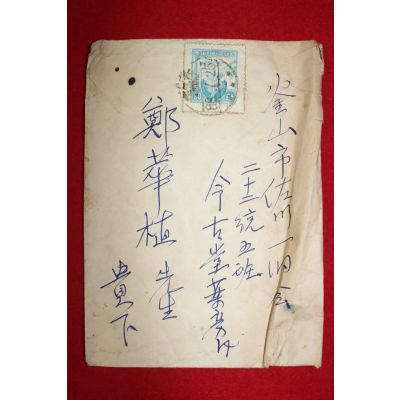 釜山市佐川一洞会
統五班
今古堂藥房内
鄭華植先生
貴下